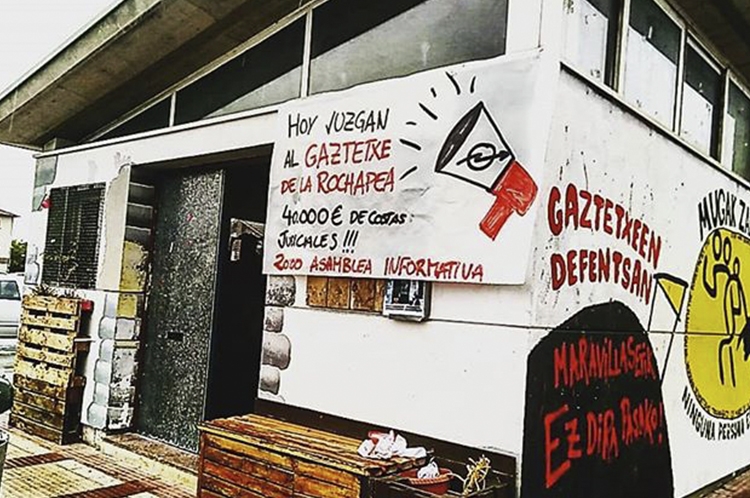 HOY JUZGAN
AL GAZTETXE
DE LA ROCHAPEA
40.000 € DE COSTAS
JUDICIALES !!!
20:00 ASAMBLEA INFORMATIVA
GAZTETXEEN
DEFENTSAN
MARAVILLASETIK
EZ DIRA PASAKO!
MUGAK ZA
NINGUNA PERSONA E